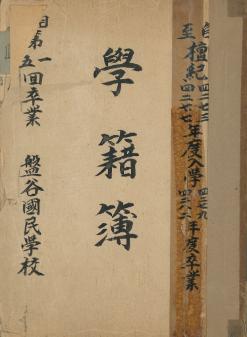 自至檀紀四二七三四二七七年度入學四二七九四二八二年度卒業
學籍簿
自第一
五回卒業
盤谷國民學校